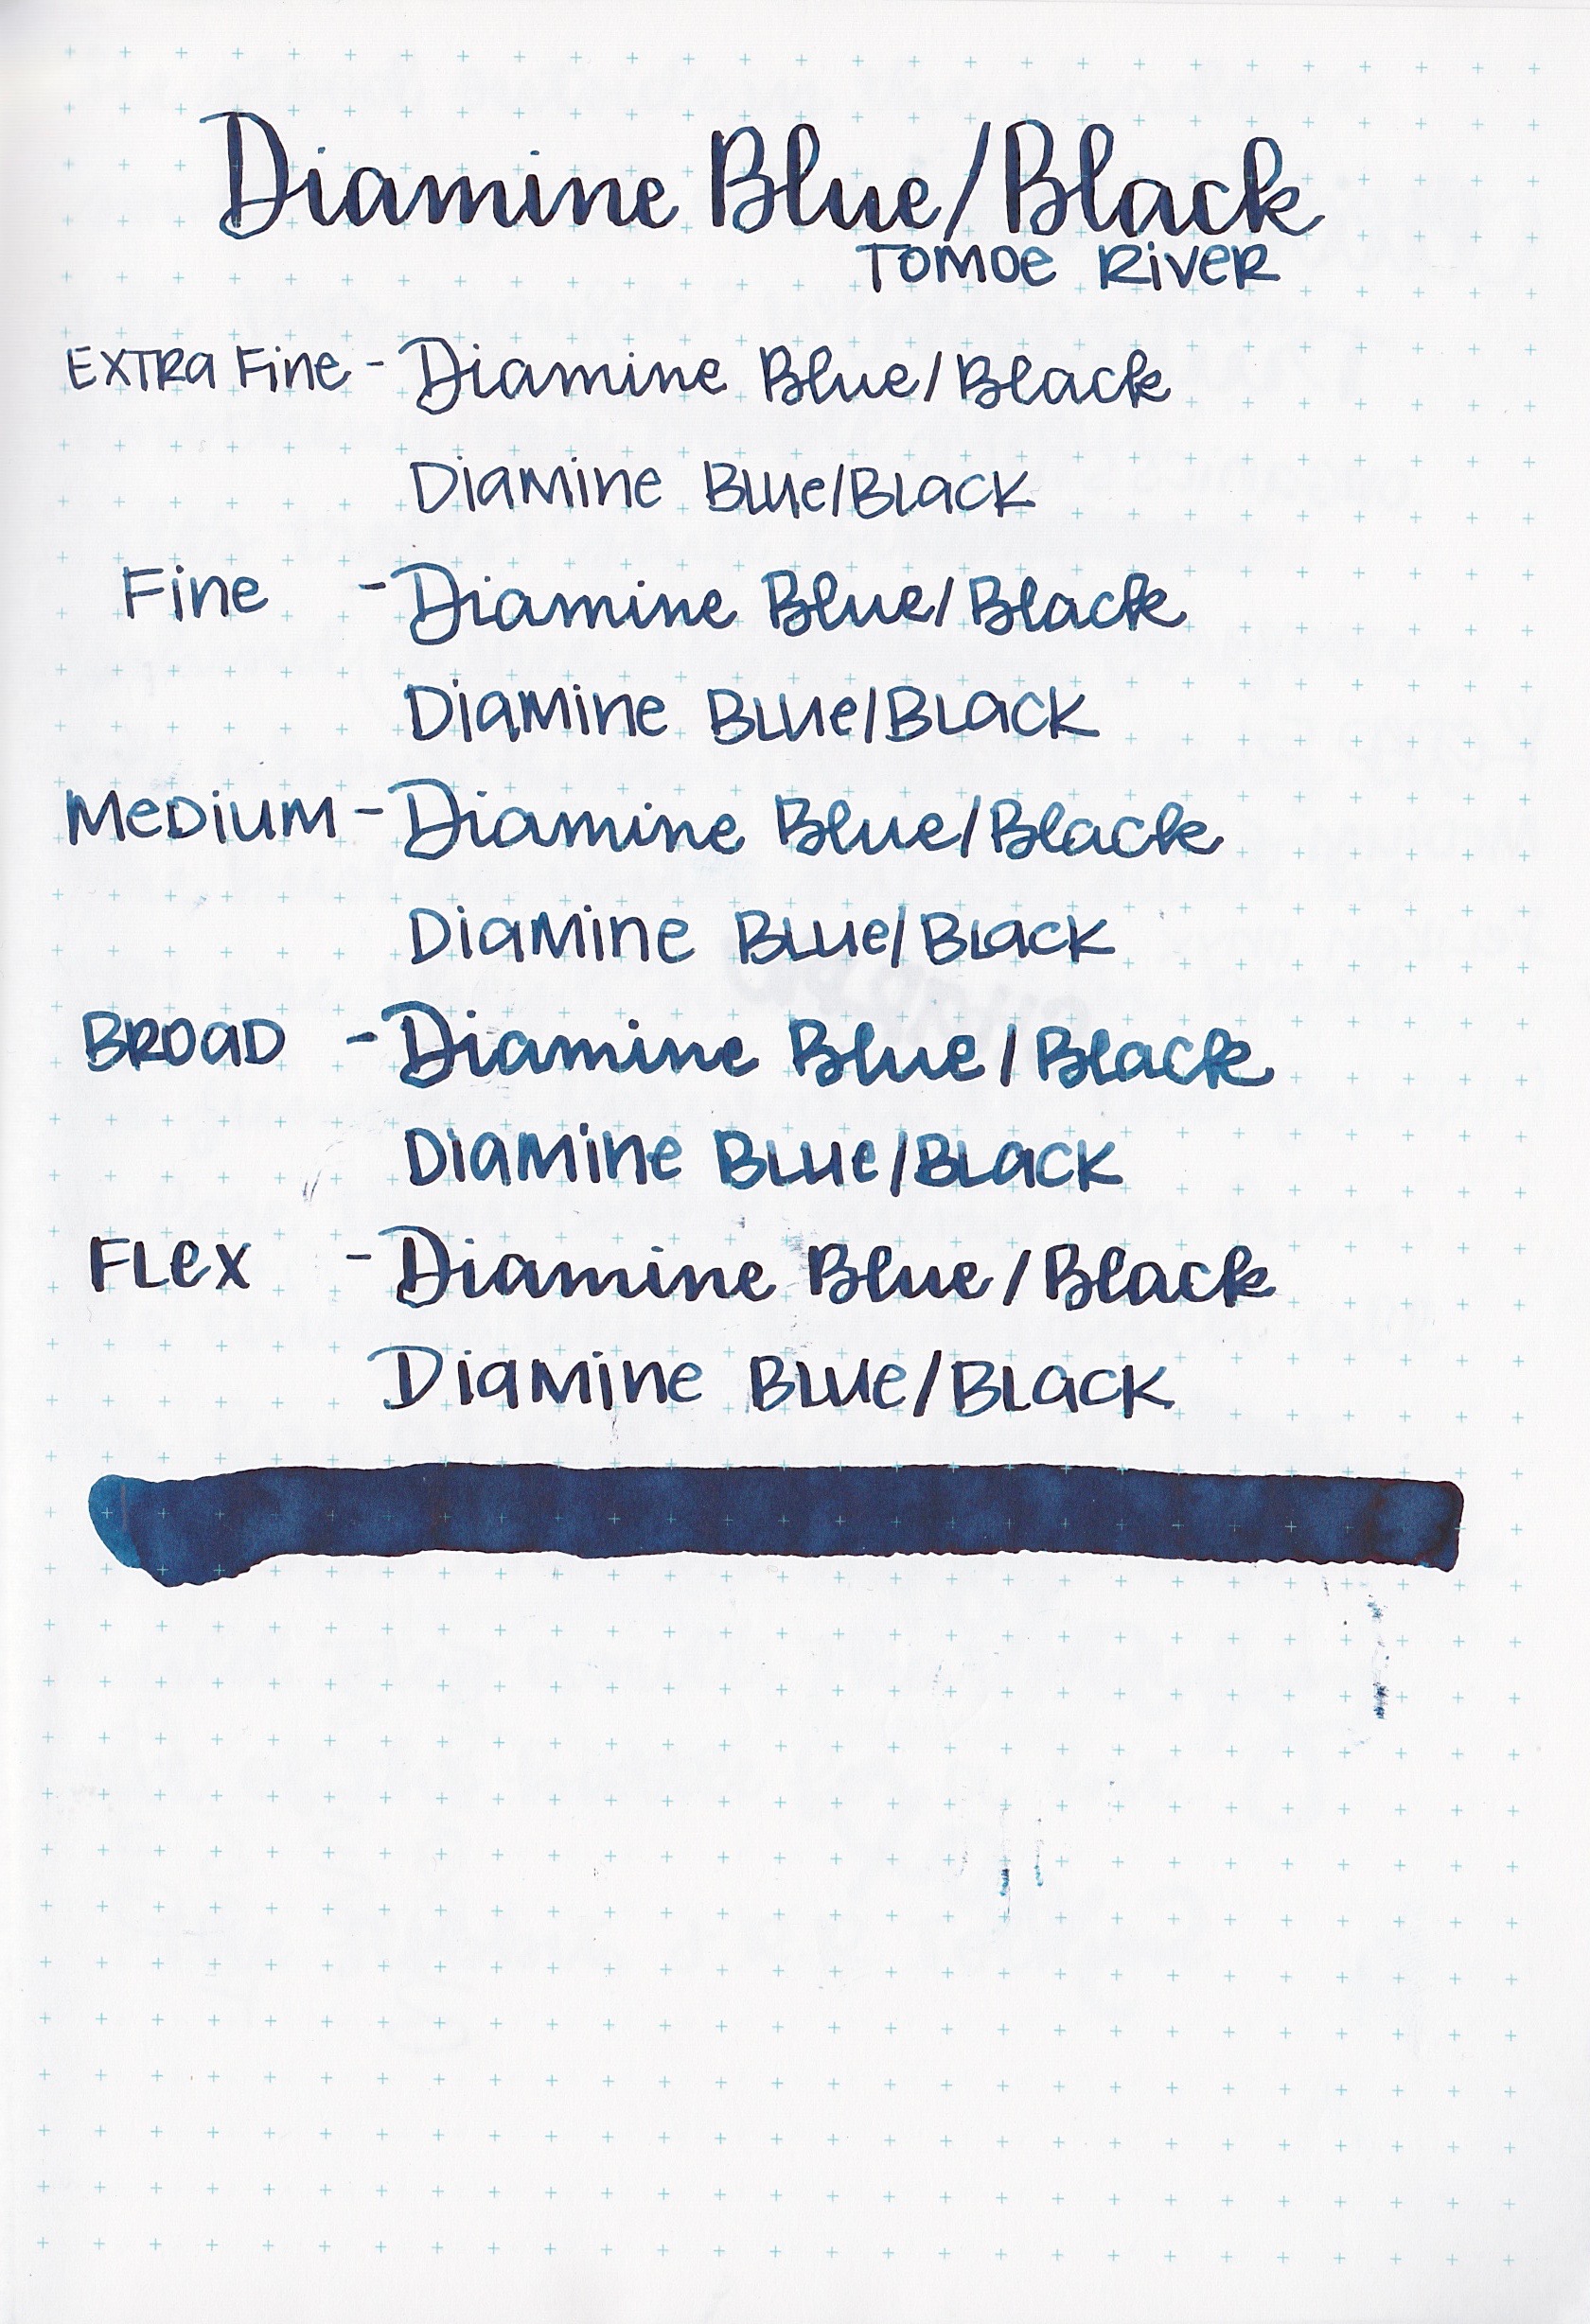 Diamine Blue/Black
Tomoe River
Extra Fine - Diamine Blue/Black
Diamine Blue/Black
Fine - Diamine Blue/Black
Diamine Blue/Black
Medium - Diamine Blue/Black
Diamine Blue/Black
Broad - Diamine Blue/Black
Diamine Blue/Black
Flex - Diamine Blue/Black
Diamine Blue/Black